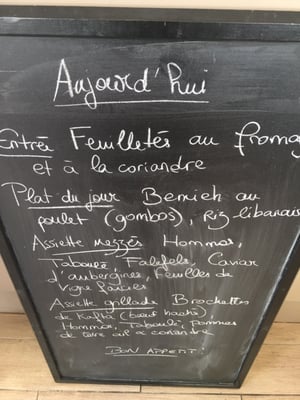 Aujourd'hui
Entrée Feuilletés au fromag
et à la coriandre
Plat du jour Bemieh au
poulet (gombos), Riz libanais
Assiette mezzés Hommos,
Taboulé Falafels, Caviar
d'aubergines, Feuilles de
Vigne farcies
Assiette grillade Brochettes
de Kafta (bœuf haché),
Hommos, Taboulé, pommes
de terre ail & coriandre
BON APPETIT!